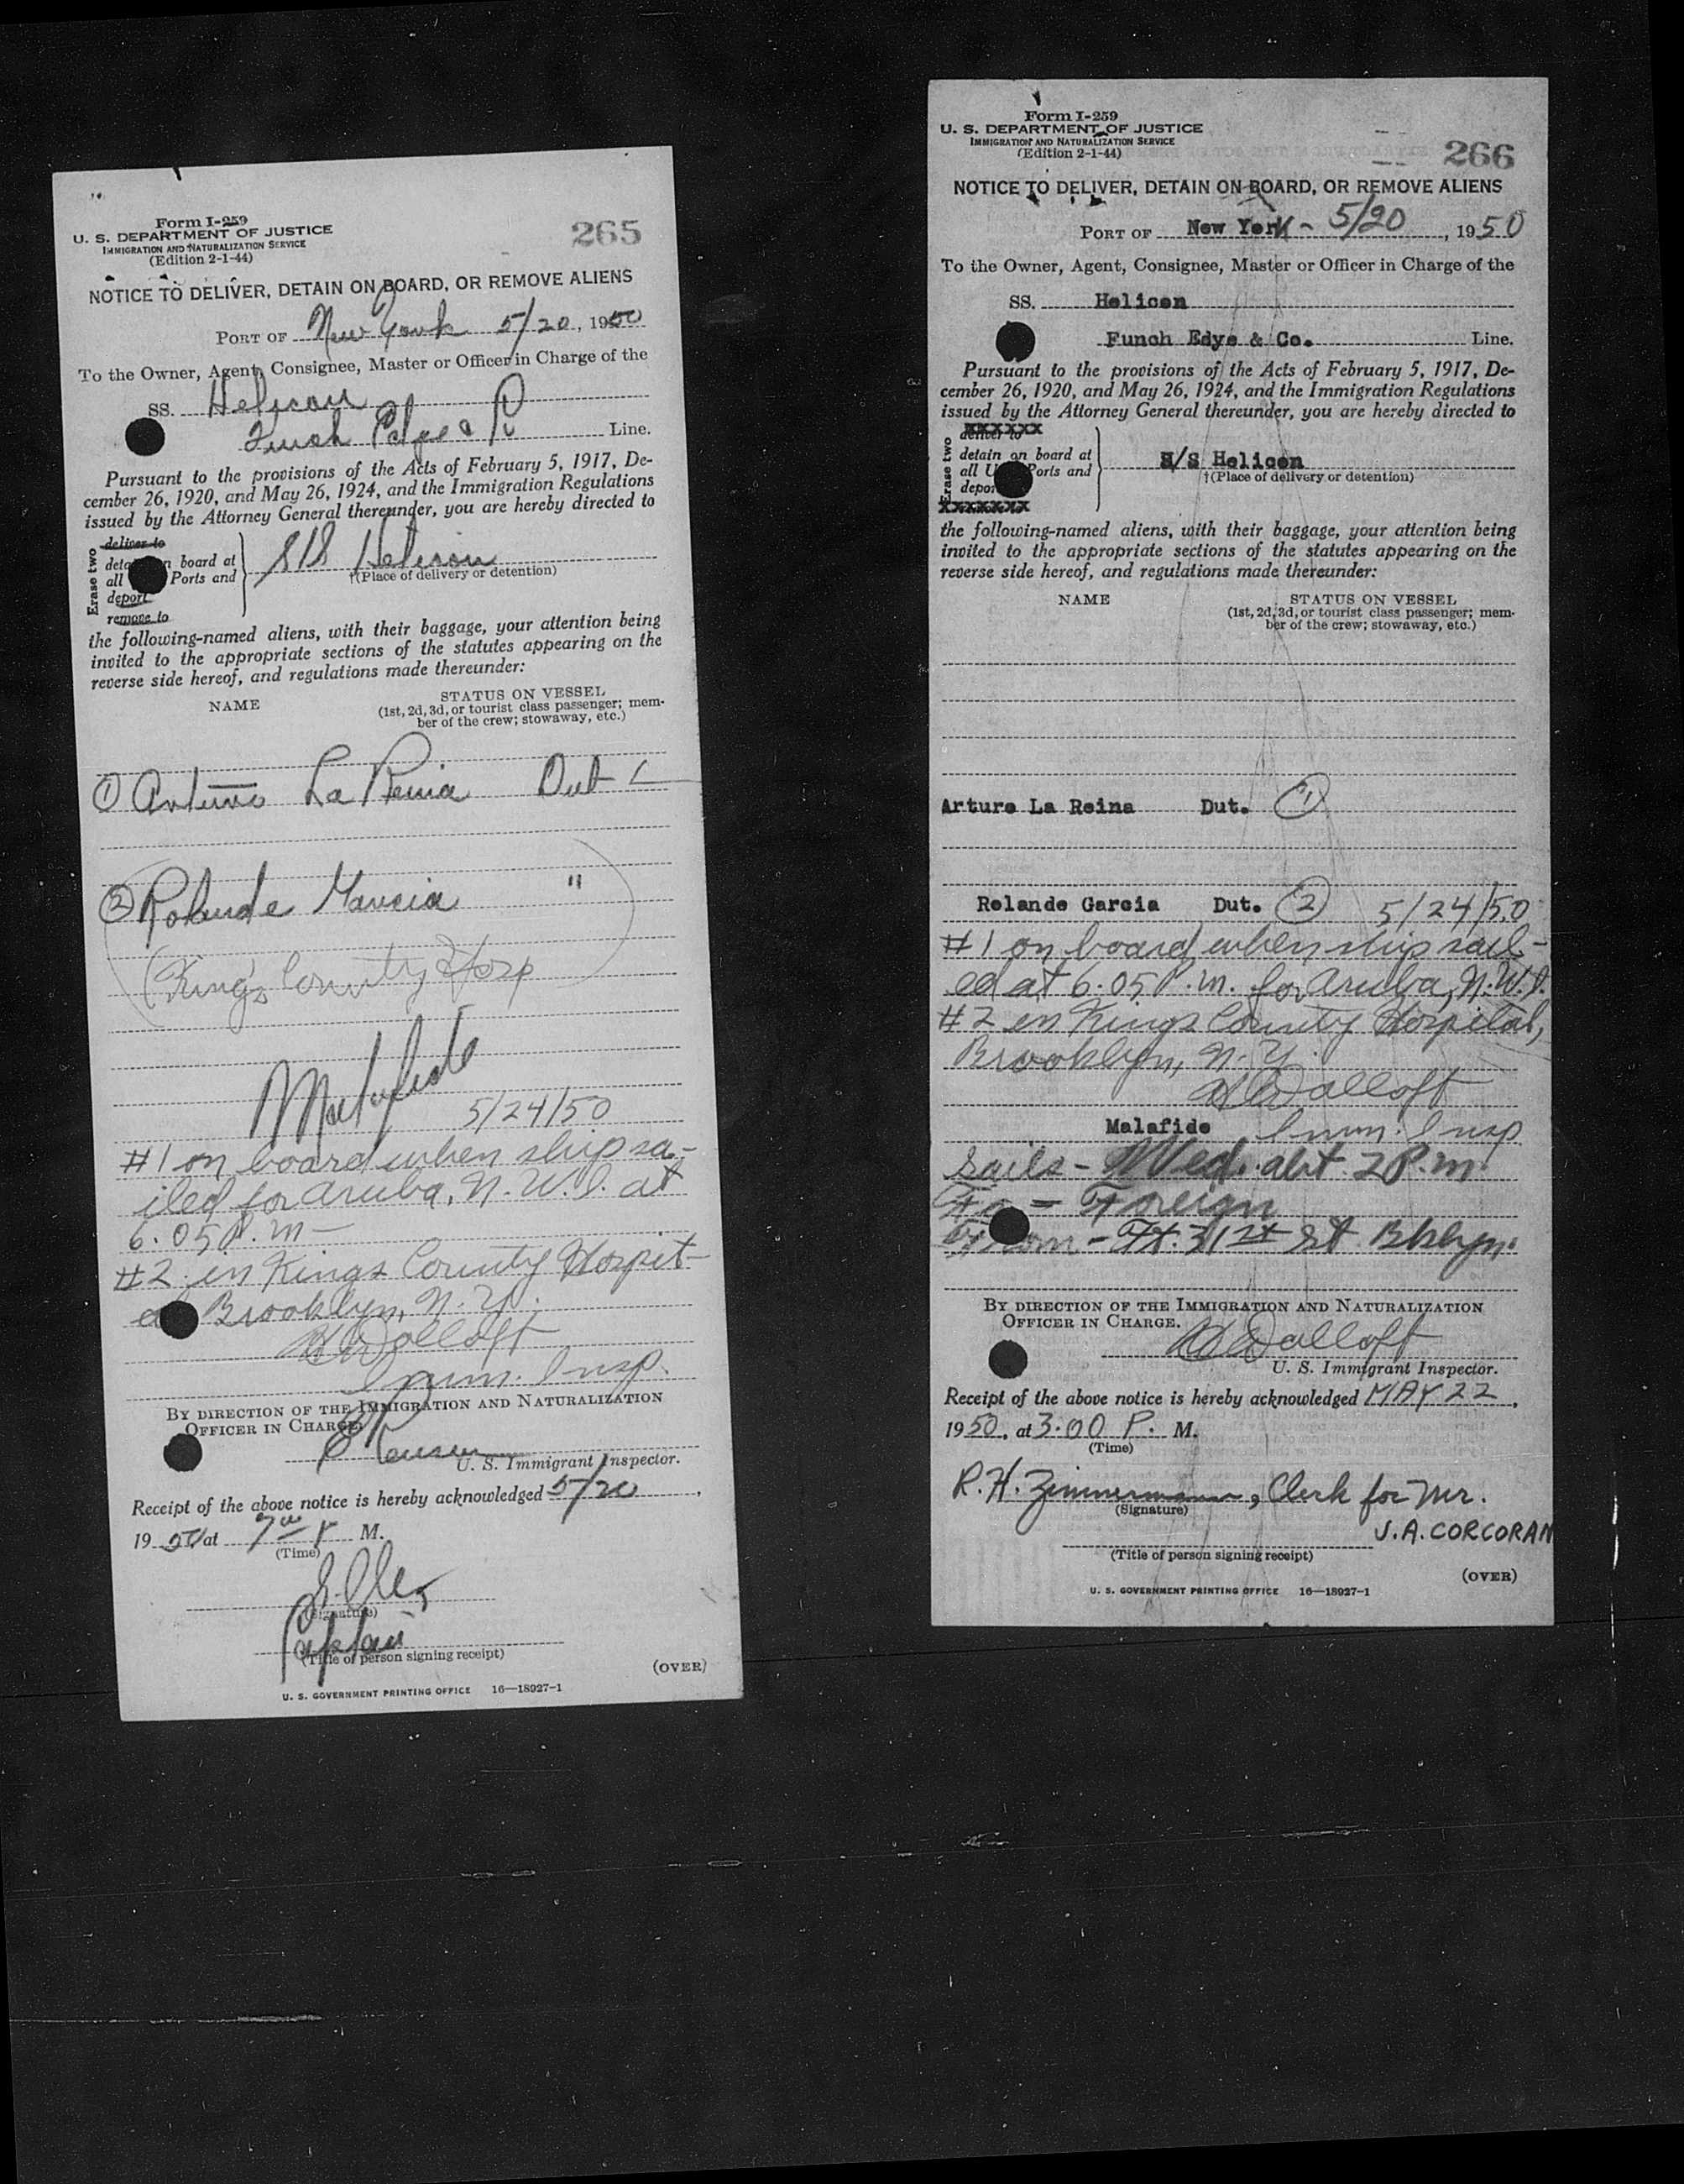 Form I-259
U. S. DEPARTMENT OF JUSTICE
IMMIGRATION AND NATURALIZATION SERVICE
(Edition 2-1-44)
265
NOTICE TO DELIVER, DETAIN ON BOARD, OR REMOVE ALIENS
PORT OF New York 5/20, 1950
To the Owner, Agent, Consignee, Master or Officer in Charge of the
SS. Helicon
Funch Edye & Line.
Pursuant to the provisions of the Acts of February 5, 1917, De-
cember 26, 1920, and May 26, 1924, and the Immigration Regulations
issued by the Attorney General thereunder, you are hereby directed to
Erase two
deliver to
board at
all Ports and
deport
remove to
S/S Helicon
†(Place of delivery or detention)
the following-named aliens, with their baggage, your attention being
invited to the appropriate sections of the statutes appearing on the
reverse side hereof, and regulations made thereunder:
NAME STATUS ON VESSEL
(1st, 2d, 3d, or tourist class passenger; mem-
ber of the crew; stowaway, etc.)
① Arturo La Reina Dut
② Rolande Garcia "
(Kings County Hosp
Malafide
5/24/50
#1 on board when ship sa-
iled for Aruba, N.W.I. at
6.05 P.m—
#2 in Kings County Hospit-
Brooklyn, N.Y.
Dalloft
Imm. Insp.
BY DIRECTION OF THE IMMIGRATION AND NATURALIZATION
OFFICER IN CHARGE.
U. S. Immigrant Inspector.
Receipt of the above notice is hereby acknowledged 5/20,
1950 at M.
(Time)
(Signature)
Captain
(Title of person signing receipt)
(OVER)
U. S. GOVERNMENT PRINTING OFFICE 16—18927-1
Form I-259
U. S. DEPARTMENT OF JUSTICE
IMMIGRATION AND NATURALIZATION SERVICE
(Edition 2-1-44)
266
NOTICE TO DELIVER, DETAIN ON BOARD, OR REMOVE ALIENS
PORT OF New York - 5/20, 1950
To the Owner, Agent, Consignee, Master or Officer in Charge of the
SS. Helicon
Funch Edye & Co. Line.
Pursuant to the provisions of the Acts of February 5, 1917, De-
cember 26, 1920, and May 26, 1924, and the Immigration Regulations
issued by the Attorney General thereunder, you are hereby directed to
Erase two
deliver to
detain on board at
all Ports and
xxxxxxx
S/S Helicon
†(Place of delivery or detention)
the following-named aliens, with their baggage, your attention being
invited to the appropriate sections of the statutes appearing on the
reverse side hereof, and regulations made thereunder:
NAME STATUS ON VESSEL
(1st, 2d, 3d, or tourist class passenger; mem-
ber of the crew; stowaway, etc.)
Arturo La Reina Dut. ①
Rolando Garcia Dut. ② 5/24/50
#1 on board when ship sail-
ed at 6.05 P.m. for Aruba, N.W.I.
#2 in Kings County Hospital,
Brooklyn, N.Y.
Dalloft
Malafide Imm. Insp
Sails - Wed. abt. 2 P.m.
To - Foreign
From - Ft. 31st St. Bklyn.
BY DIRECTION OF THE IMMIGRATION AND NATURALIZATION
OFFICER IN CHARGE.
Dalloft
U. S. Immigrant Inspector.
Receipt of the above notice is hereby acknowledged MAY 22,
1950, at 3.00 P. M.
(Time)
R. H. Zimmermann, Clerk for Mr.
(Signature)
J. A. CORCORAN
(Title of person signing receipt)
(OVER)
U. S. GOVERNMENT PRINTING OFFICE 16—18927-1